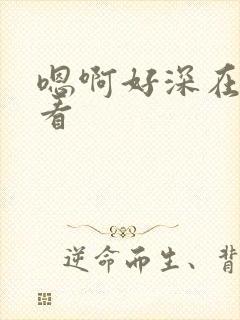 嗯啊好深在
看
逆命而生、背